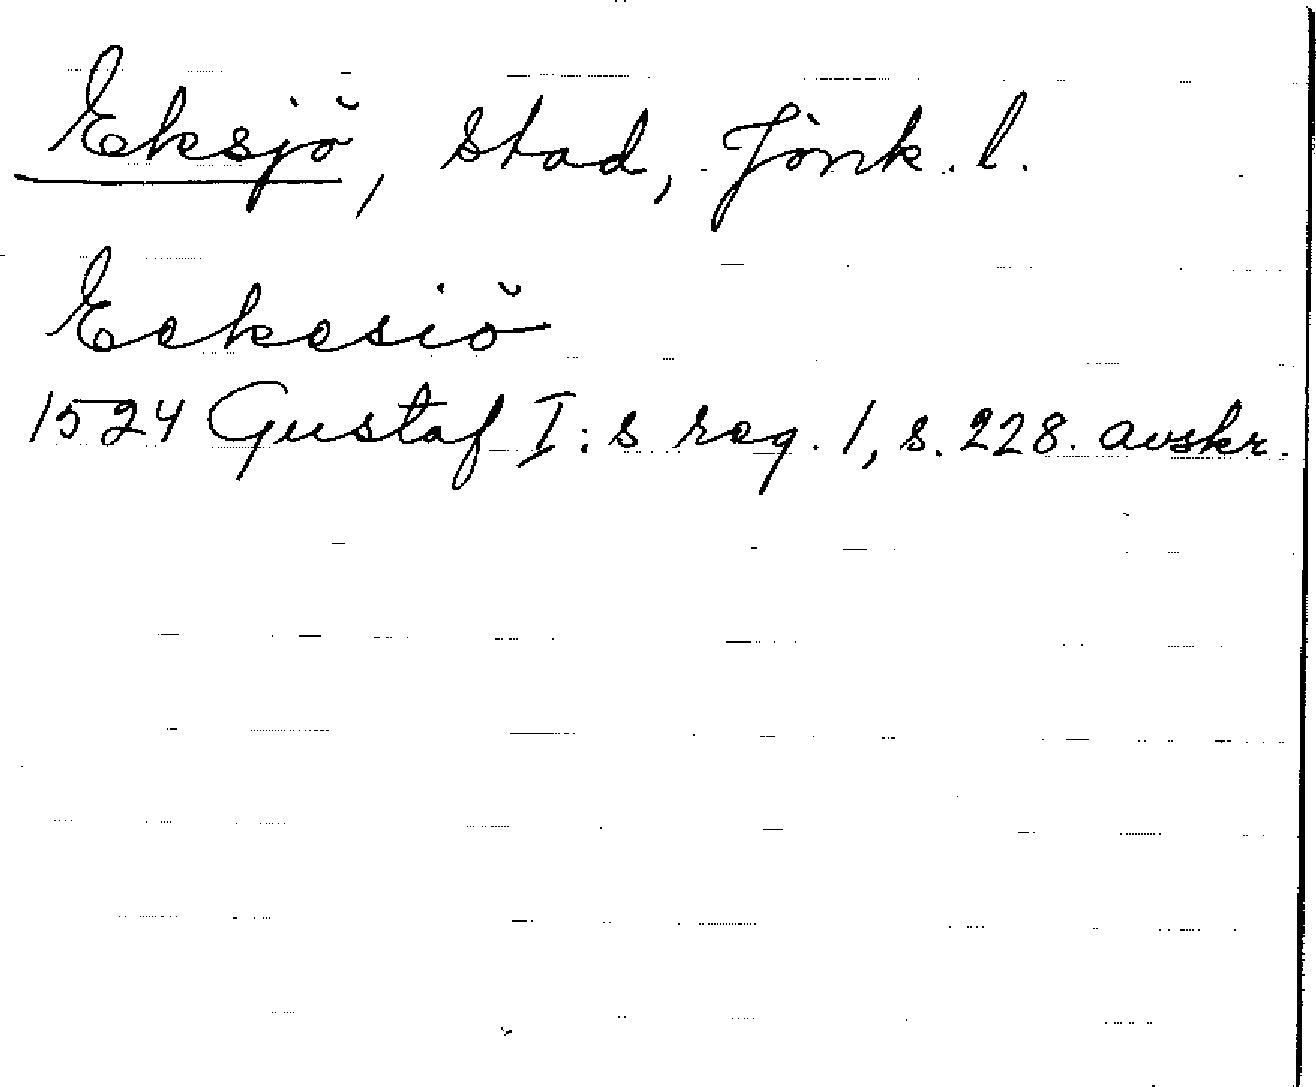 Eksjö, stad, Jönk. l.
Eckesiö
1524 Gustaf I:s reg. 1, s. 228. avskr.